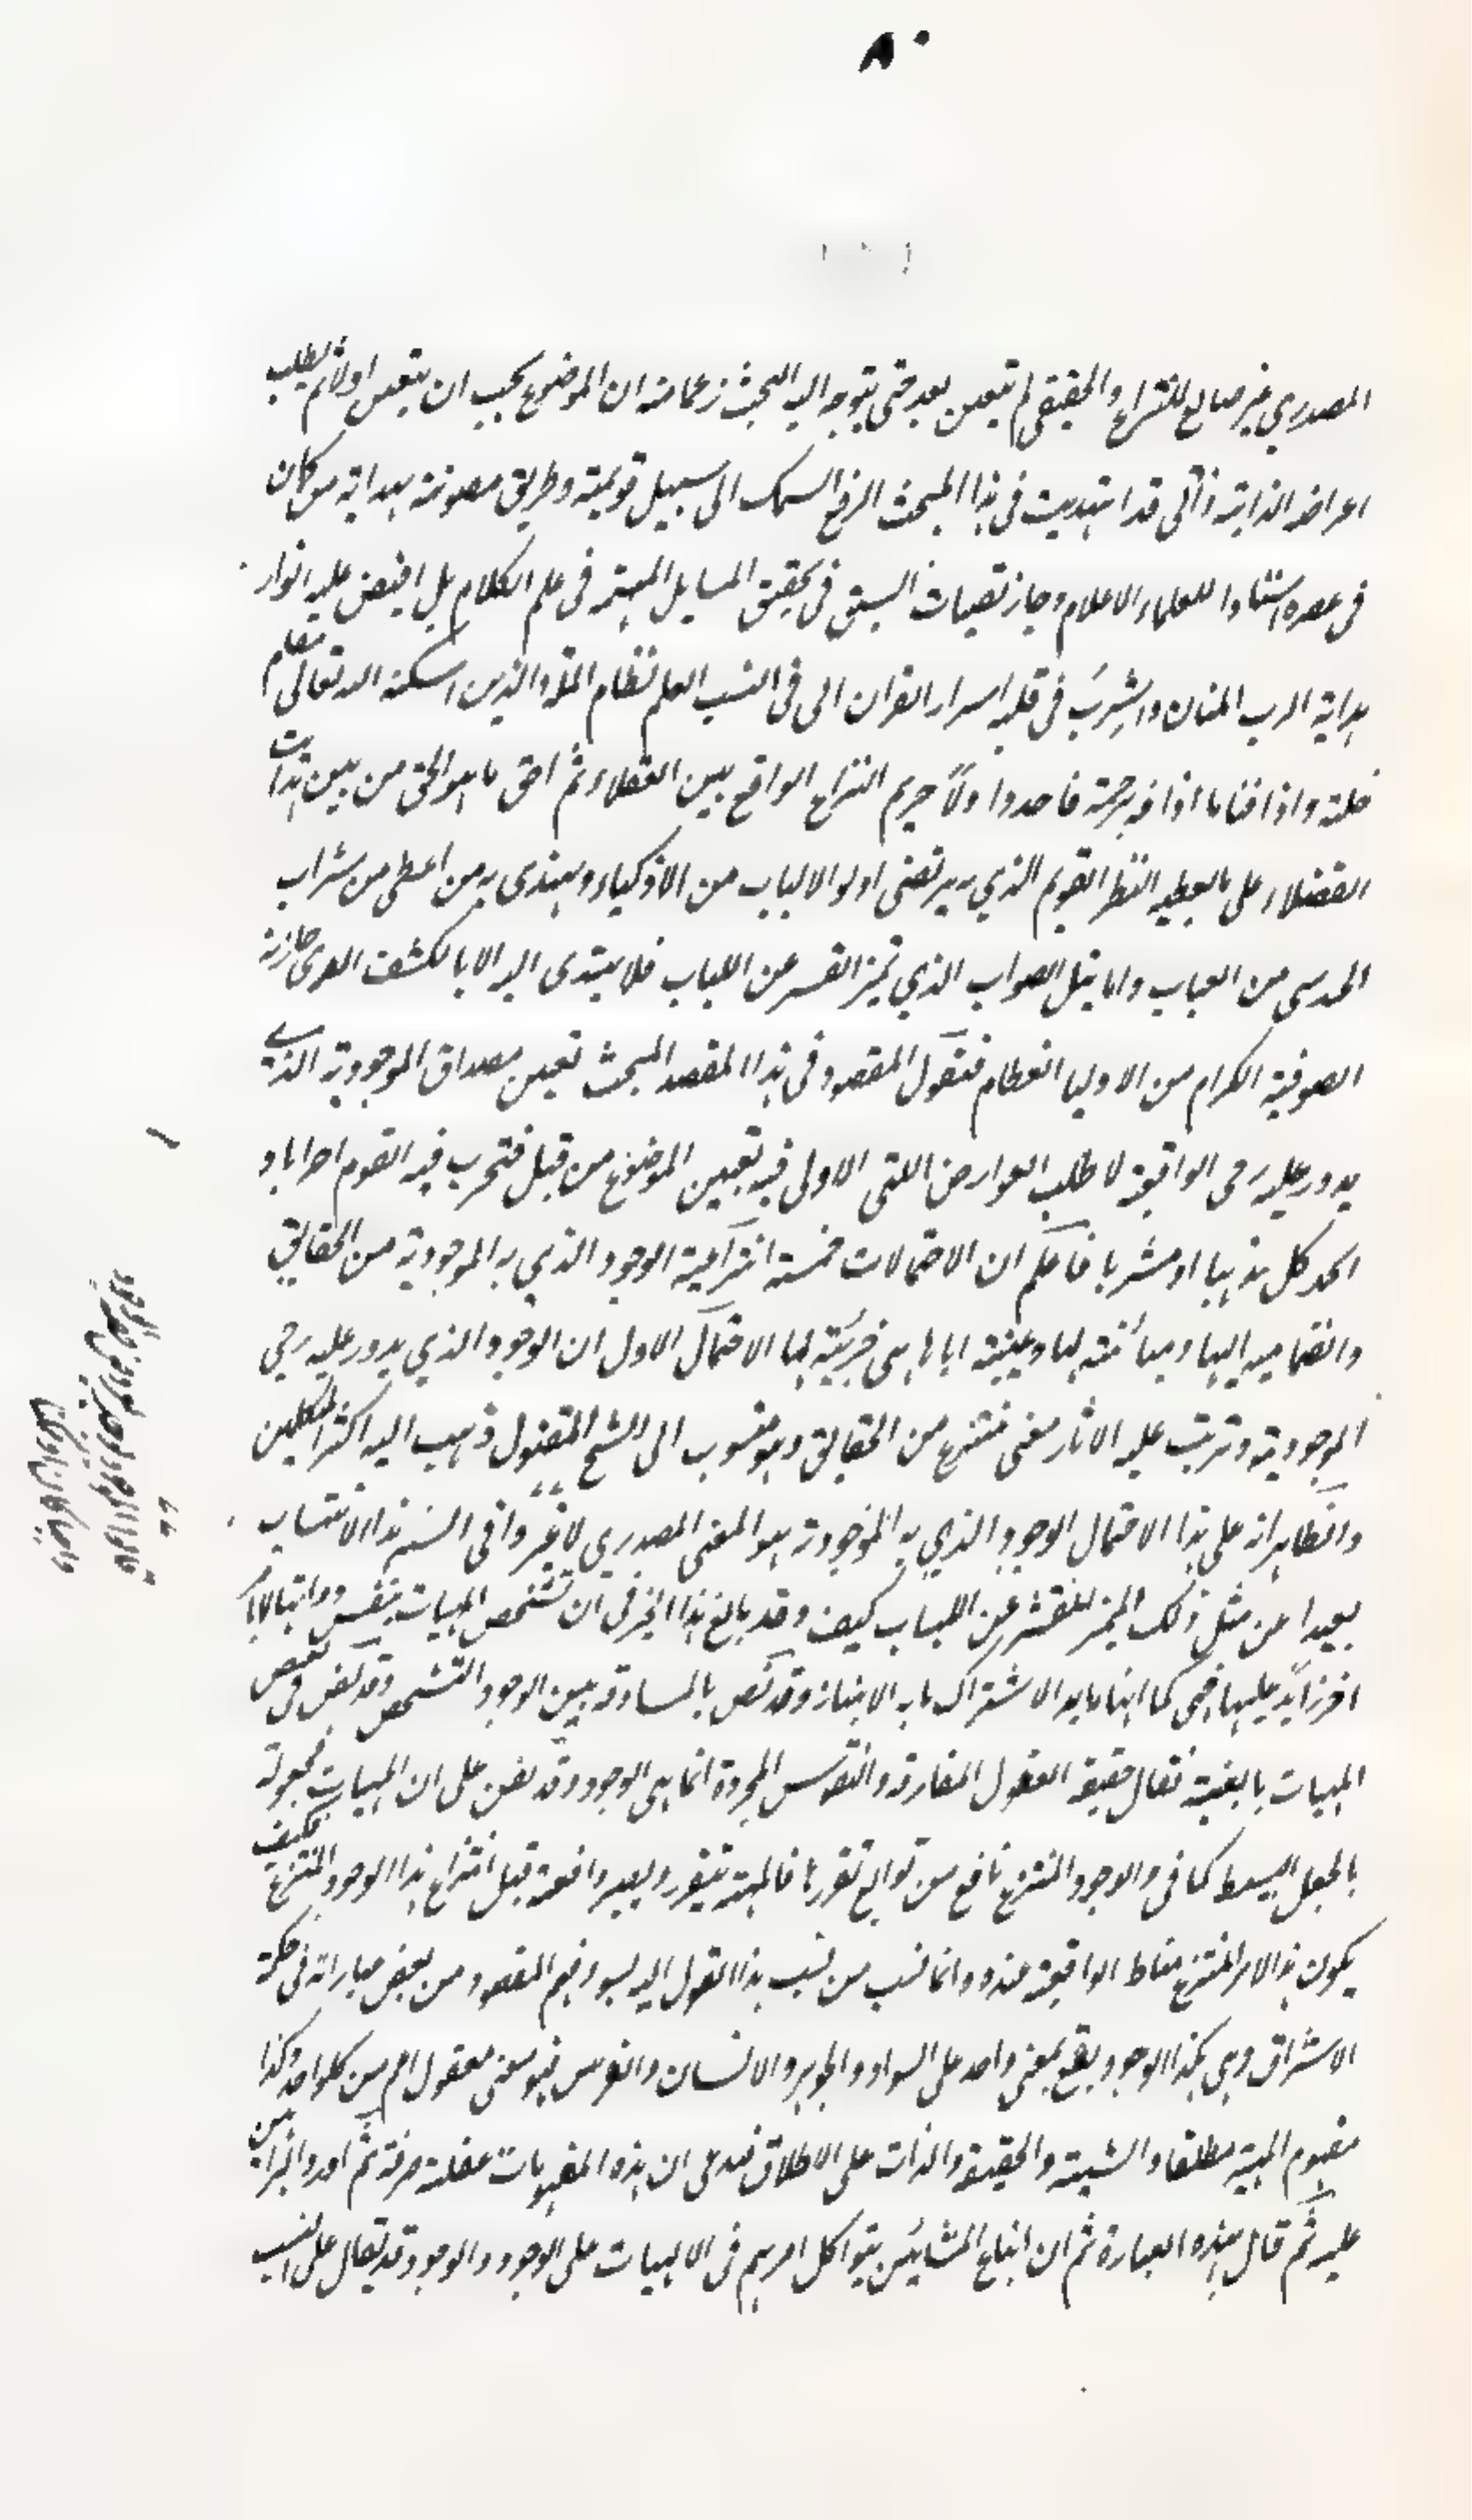 ٨٠
المصدري غير صالح للنزاع والحقيقي لم يتعين بعد حتى يتوجه اليه البحث زعما منه ان الموضوع يجب ان يتعين اولا ثم يطلب
اعراضه الذاتية فانى قد اهتديت فى هذا المبحث الرفيع السمك الى سبيل قويمة وطريق مصونة بهداية من كان
فى عصره استاذا للعلماء الاعلام وحاز قصبات السبق فى تحقيق المسايل المهمة فى علم الكلام بل افيض عليه انوار
هداية الرب المنان واشرب فى قلبه اسرار القران الى فى النسب العلم نظام الملة والدين اسكنه الله تعالى مقام
خلته واذاقنا ما اذاقه برحمته فاحدد اولاً حريم النزاع الواقع بين العقلاء ثم احق ما هو الحق من بين
الفضلاء على ما يعطيه النظر القويم الذي به يرتضى اولو الالباب من الاذكياء ويهتدى به من اعطى من شراب
الحدسى من العباب واما نيل الصواب الذي تميز القشر عن اللباب فلا يهتدى اليه الا بالكشف الذى حازته
الصوفية الكرام من الاوليا العظام فنقول المقصود فى هذا المقصد المبحث تعيين مصداق الموجودية الذى
يدور عليه رحى الواقعية لا طلب العوارض اللتى الاولى فيه تعيين الموضوع من قبل فتحزب فيه القوم احزابا و
اتخذ كل مذهبا او مشربا فاعلم ان الاحتمالات خمسة انتزاعية الوجود الذي به الموجودية من الحقايق
وانضماميه اليها ومباينته لها وعينيته اياها جزئيته لها الاحتمال الاول ان الوجود الذي يدور عليه رحى
الموجودية وترتب عليه الاثار معنى منتزع من الحقايق وهو منسوب الى الشيخ المقتول وذهب اليه اكثر المتكلمين
والظاهر انه على هذا الاحتمال الوجود الذي به الموجودية هو المعنى المصدري لا غير وافى السير هذا الانتساب
بعيدا من مثل ذلك الحبر للقشر عن اللباب كيف وقد بالغ هذا الحبر فى ان تشخص المهيات بنفس ذواتها لا بامر
اخر زايد عليها فهى كما انها ما به الاشتراك ما به الامتياز وقد نص بالمساوقة بين الوجود والتشخص وقد نص فى بعض
المهيات بالعينية فقال حقيقة العقول المفارقة والنفوس المجردة انما هى الوجود وقد نص على ان المهيات مجعولة
بالجعل البسيط كما فى والوجود المنتزع تابع من توابع تقررها فالمهية تتقرر ويصير واقعة قبل انتزاع هذا الوجود المنتزع فكيف
يكون هذا الامر المنتزع مناط الواقعية عنده وانما نسب من نسب هذا القول اليه بسوء فهم المقصود من بعض عباراته فى حكمة
الاشراق وهى هكذا الوجود يقع بمعنى واحد على السواد والجوهر والانسان والفرس فهو معنى معقول اعم من كل واحد وكذا
مفهوم المهية مطلقا والشيئية والحقيقة والذات على الاطلاق فندعى ان هذه المفهومات عقلية صرفة ثم اورد البراهين
عليه ثم قال بهذه العبارة ثم ان اتباع المشائين بنوا كل امرهم فى الالهيات على الوجود والوجود قد يقال على النسب